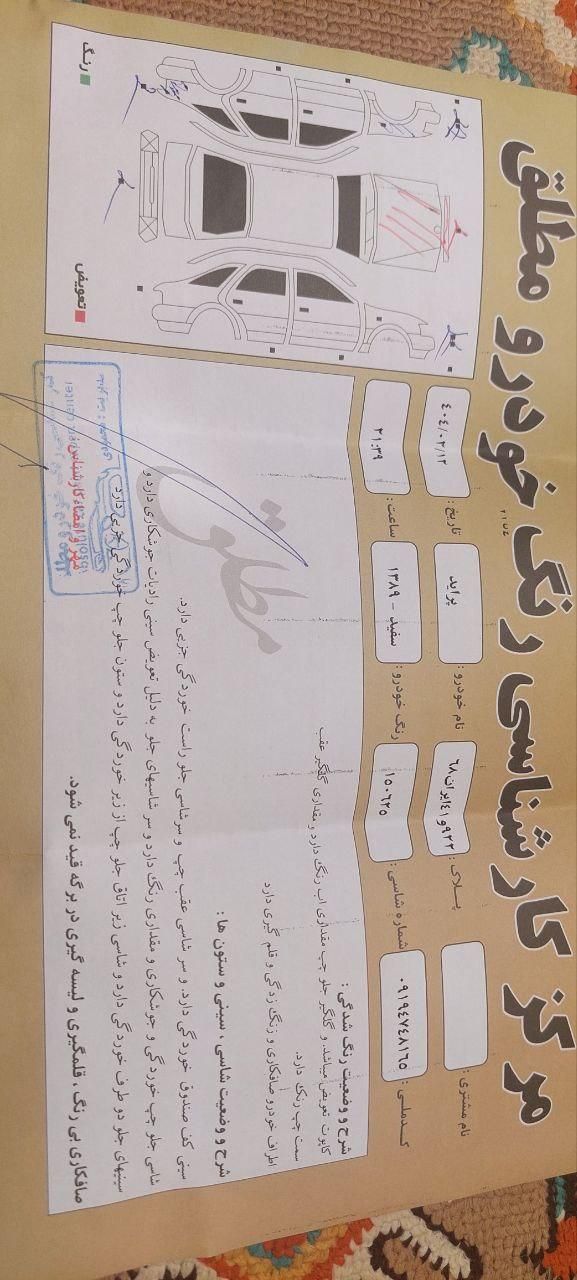 مرکز کارشناسی رنگ خودرو مطلق
نام مشتری :
پلاک : ۹۲۲و۴۱ایران۶۸
نام خودرو : پراید
تاریخ : ۴۰۴/۰۲/۱۳
کدملی : ۰۹۱۹۴۷۴۸۱۶۵
شماره شاسی : ۱۵۰۶۲۵
رنگ خودرو : سفید - ۱۳۸۹
ساعت : ۲۱:۳۹
شرح و وضعیت رنگ شدگی :
کاپوت تعویض میباشد. و گلگیر جلو چپ مقداری اب رنگ دارد و مقداری گلگیر عقب
سمت چپ رنگ دارد.
اطراف خودرو صافکاری و رنگ زدگی و قلم گیری دارد
شرح و وضعیت شاسی ، سینی و ستون ها :
سینی کف صندوق خوردگی دارد. و سر شاسی عقب چپ و سرشاسی جلو راست خوردگی جزیی دارد.
شاسی جلو چپ خوردگی و جوشکاری و مقداری رنگ دارد و سر شاسیهای جلو به دلیل تعویض سینی رادیات جوشکاری دارد و
سینیهای جلو دو طرف خوردگی دارد و شاسی زیر اتاق جلو چپ از زیر خوردگی دارد و ستون جلو چپ خوردگی جزیی دارد
صافکاری بی رنگ ، قلمگیری و لیسه گیری در برگه قید نمی شود.
مطلق
مهر و امضاء کارشناس
رنگ
تعویض